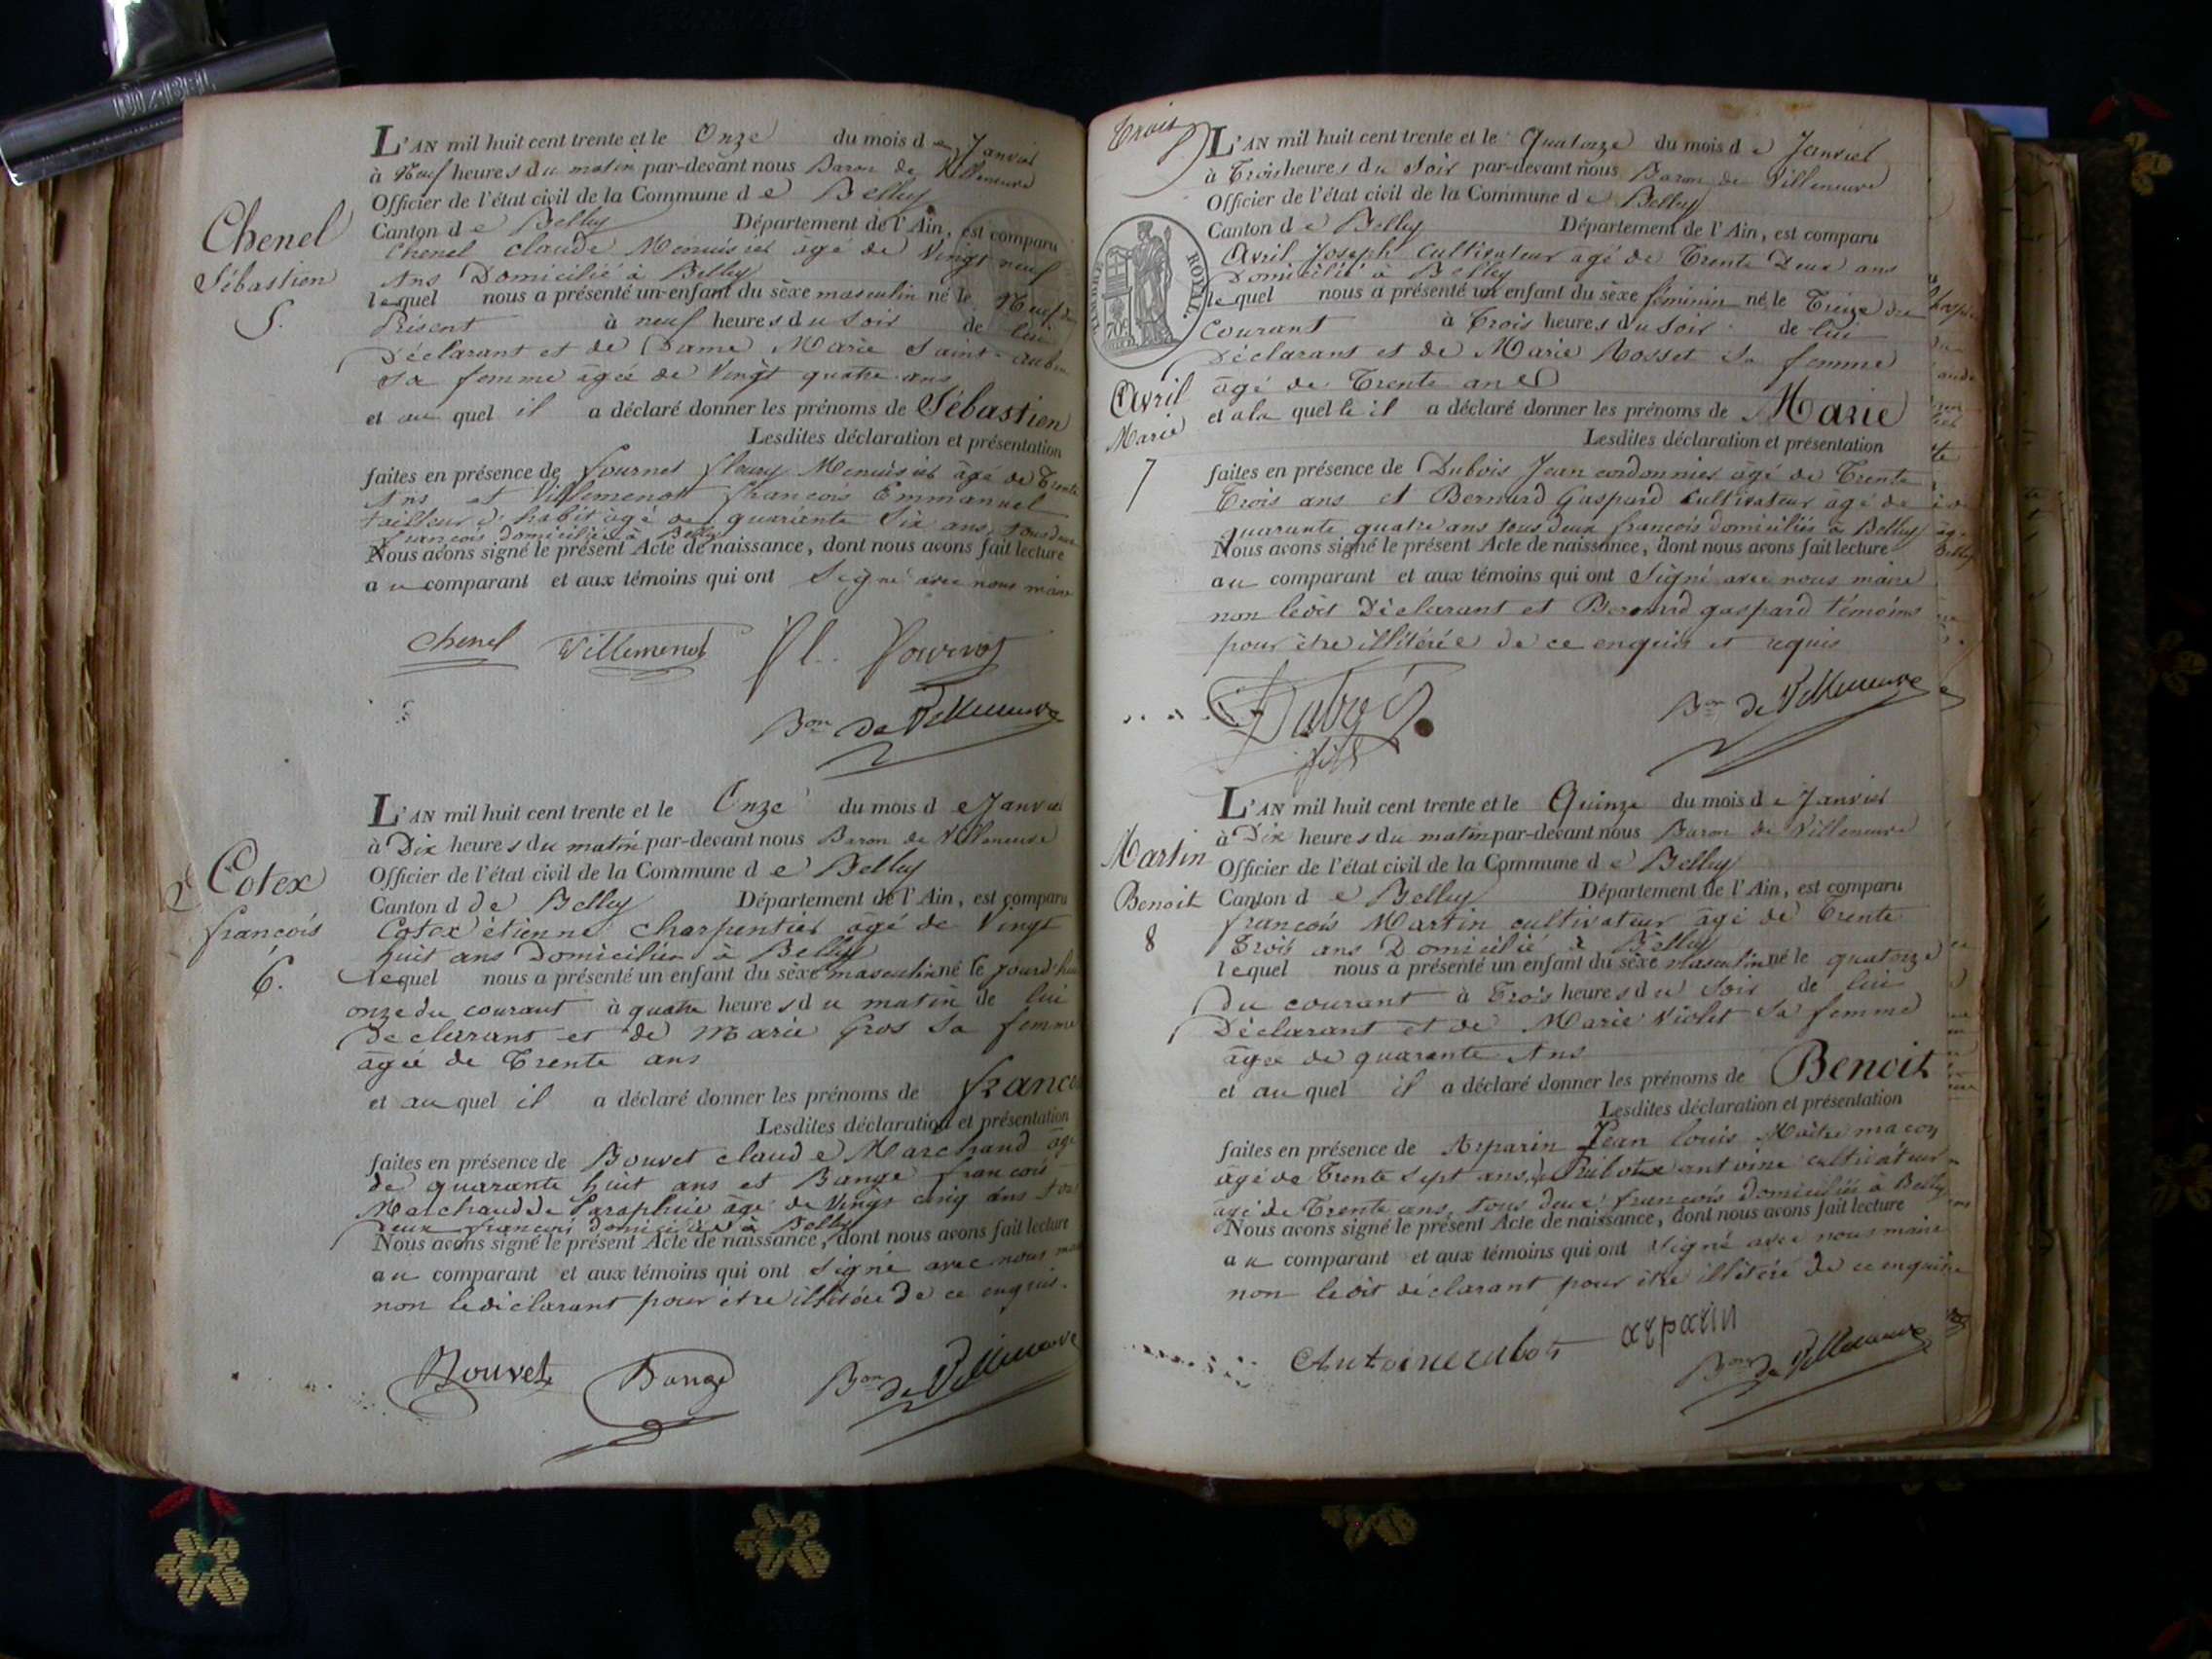 L'AN mil huit cent trente et le Onze du mois de Janvier
à Neuf heures du matin par-devant nous Baron de Villeneuve
Officier de l'état civil de la Commune de Belley
Canton de Belley Département de l'Ain, est comparu
Chenel
Sébastien
5.
Chenel Claude Menuisier âgé de Vingt neuf
Ans Domicilié à Belley
lequel nous a présenté un enfant du sèxe masculin né le Neuf du
Présent à neuf heures du soir de lui
Déclarant et de Dame Marie Saint-Aubin
sa femme âgée de Vingt quatre ans
et auquel il a déclaré donner les prénoms de Sébastien
Lesdites déclaration et présentation
faites en présence de fournet fleury Menuisier âgé de Trente
Ans et Villemenot françois Emmanuel
tailleur d'habit âgé de quarante Six ans, tous deux
françois domiciliés à Belley
Nous avons signé le présent Acte de naissance, dont nous avons fait lecture
au comparant et aux témoins qui ont Signé avec nous maire
Chenel Villemenot fl.
Bon de Villeneuve
L'AN mil huit cent trente et le Onze du mois de Janvier
à Dix heures du matin par-devant nous Baron de Villeneuve
Officier de l'état civil de la Commune de Belley
Canton d de Belley Département de l'Ain, est comparu
Cotex
françois
6.
Cotex étienne charpentier âgé de Vingt
huit ans Domicilié à Belley
lequel nous a présenté un enfant du sèxe masculin né le jourd'hui
onze du courant à quatre heures du matin de lui
Declarant et de Marie Gros Sa femme
âgée de Trente ans
et auquel il a déclaré donner les prénoms de françois
Lesdites déclaration et présentation
faites en présence de Bouvet claude Marchand âgé
de quarante huit ans et Bange françois
Marchand de Paraphuie âgé de Vingt cinq ans tous
Deux françois domiciliés à Belley
Nous avons signé le présent Acte de naissance, dont nous avons fait lecture
au comparant et aux témoins qui ont Signé avec nous maire
non le déclarant pour être illitéré de ce enquis.
Bouvet Bange Bon de Villeneuve
Trois
L'AN mil huit cent trente et le Quatorze du mois de Janvier
à Trois heures du Soir par-devant nous Baron de Villeneuve
Officier de l'état civil de la Commune de Belley
Canton de Belley Département de l'Ain, est comparu
TIMBRE ROYAL.
Avril Joseph Cultivateur âgé de Trente Deux ans
Domicilié à Belley
lequel nous a présenté un enfant du sèxe féminin né le Treize du
Courant à Trois heures du Soir de lui
Déclarant et de Marie Rosset Sa femme
âgé de Trente ans
Avril
Marie
7
et a la quelle il a déclaré donner les prénoms de Marie
Lesdites déclaration et présentation
faites en présence de Dubois Jean cordonnier âgé de Trente
Trois ans et Bernard Gaspard Cultivateur âgé de
quarante quatre ans tous deux françois domiciliés à Belley
Nous avons signé le présent Acte de naissance, dont nous avons fait lecture
au comparant et aux témoins qui ont Signé avec nous maire
non ledit Déclarant et Bernard gaspard témoins
pour être illitérée de ce enquis et requis
Dubois
fils
Bon de Villeneuve
L'AN mil huit cent trente et le Quinze du mois de Janvier
à Dix heures du matin par-devant nous Baron de Villeneuve
Officier de l'état civil de la Commune de Belley
Martin
Benoit
8
Canton de Belley Département de l'Ain, est comparu
françois Martin cultivateur âgé de Trente
Trois ans Domicilié à Belley
lequel nous a présenté un enfant du sèxe masculin né le quatorze
du courant à Trois heures du Soir de lui
Déclarant et de Marie Violet Sa femme
âgée de quarante Ans
et auquel il a déclaré donner les prénoms de Benoit
Lesdites déclaration et présentation
faites en présence de Arparin Jean louis Maitre maçon
âgé de Trente sept ans, antoine cultivateur
âgé de Trente ans, tous deux françois domiciliés à Belley
Nous avons signé le présent Acte de naissance, dont nous avons fait lecture
au comparant et aux témoins qui ont Signé avec nous maire
non ledit déclarant pour être illitéré de ce enquis
arparin
Bon de Villeneuve